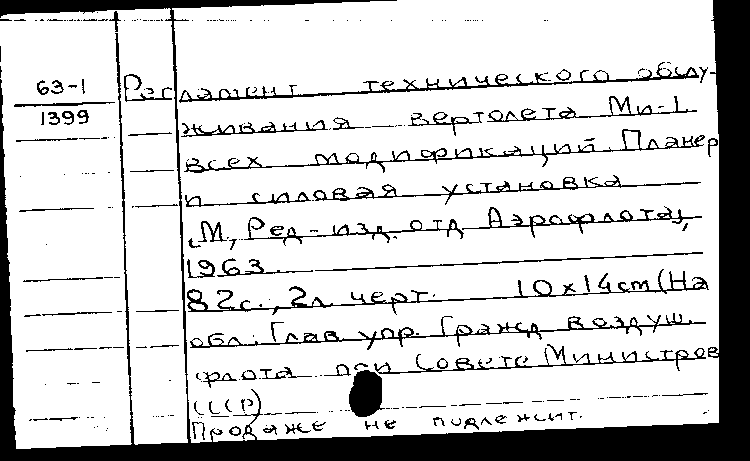 63-1 Регламент технического обслу-
1399 живания вертолета Ми-1
всех модификаций. Планер
и силовая установка
[М, Ред-изд. отд Аэрофлота],
1963.
82с., 2л. черт. 10х14см (На
обл.: Глав упр. Гражд воздуш.
флота при Совете Министров
СССР)
Продаже не подлежит.